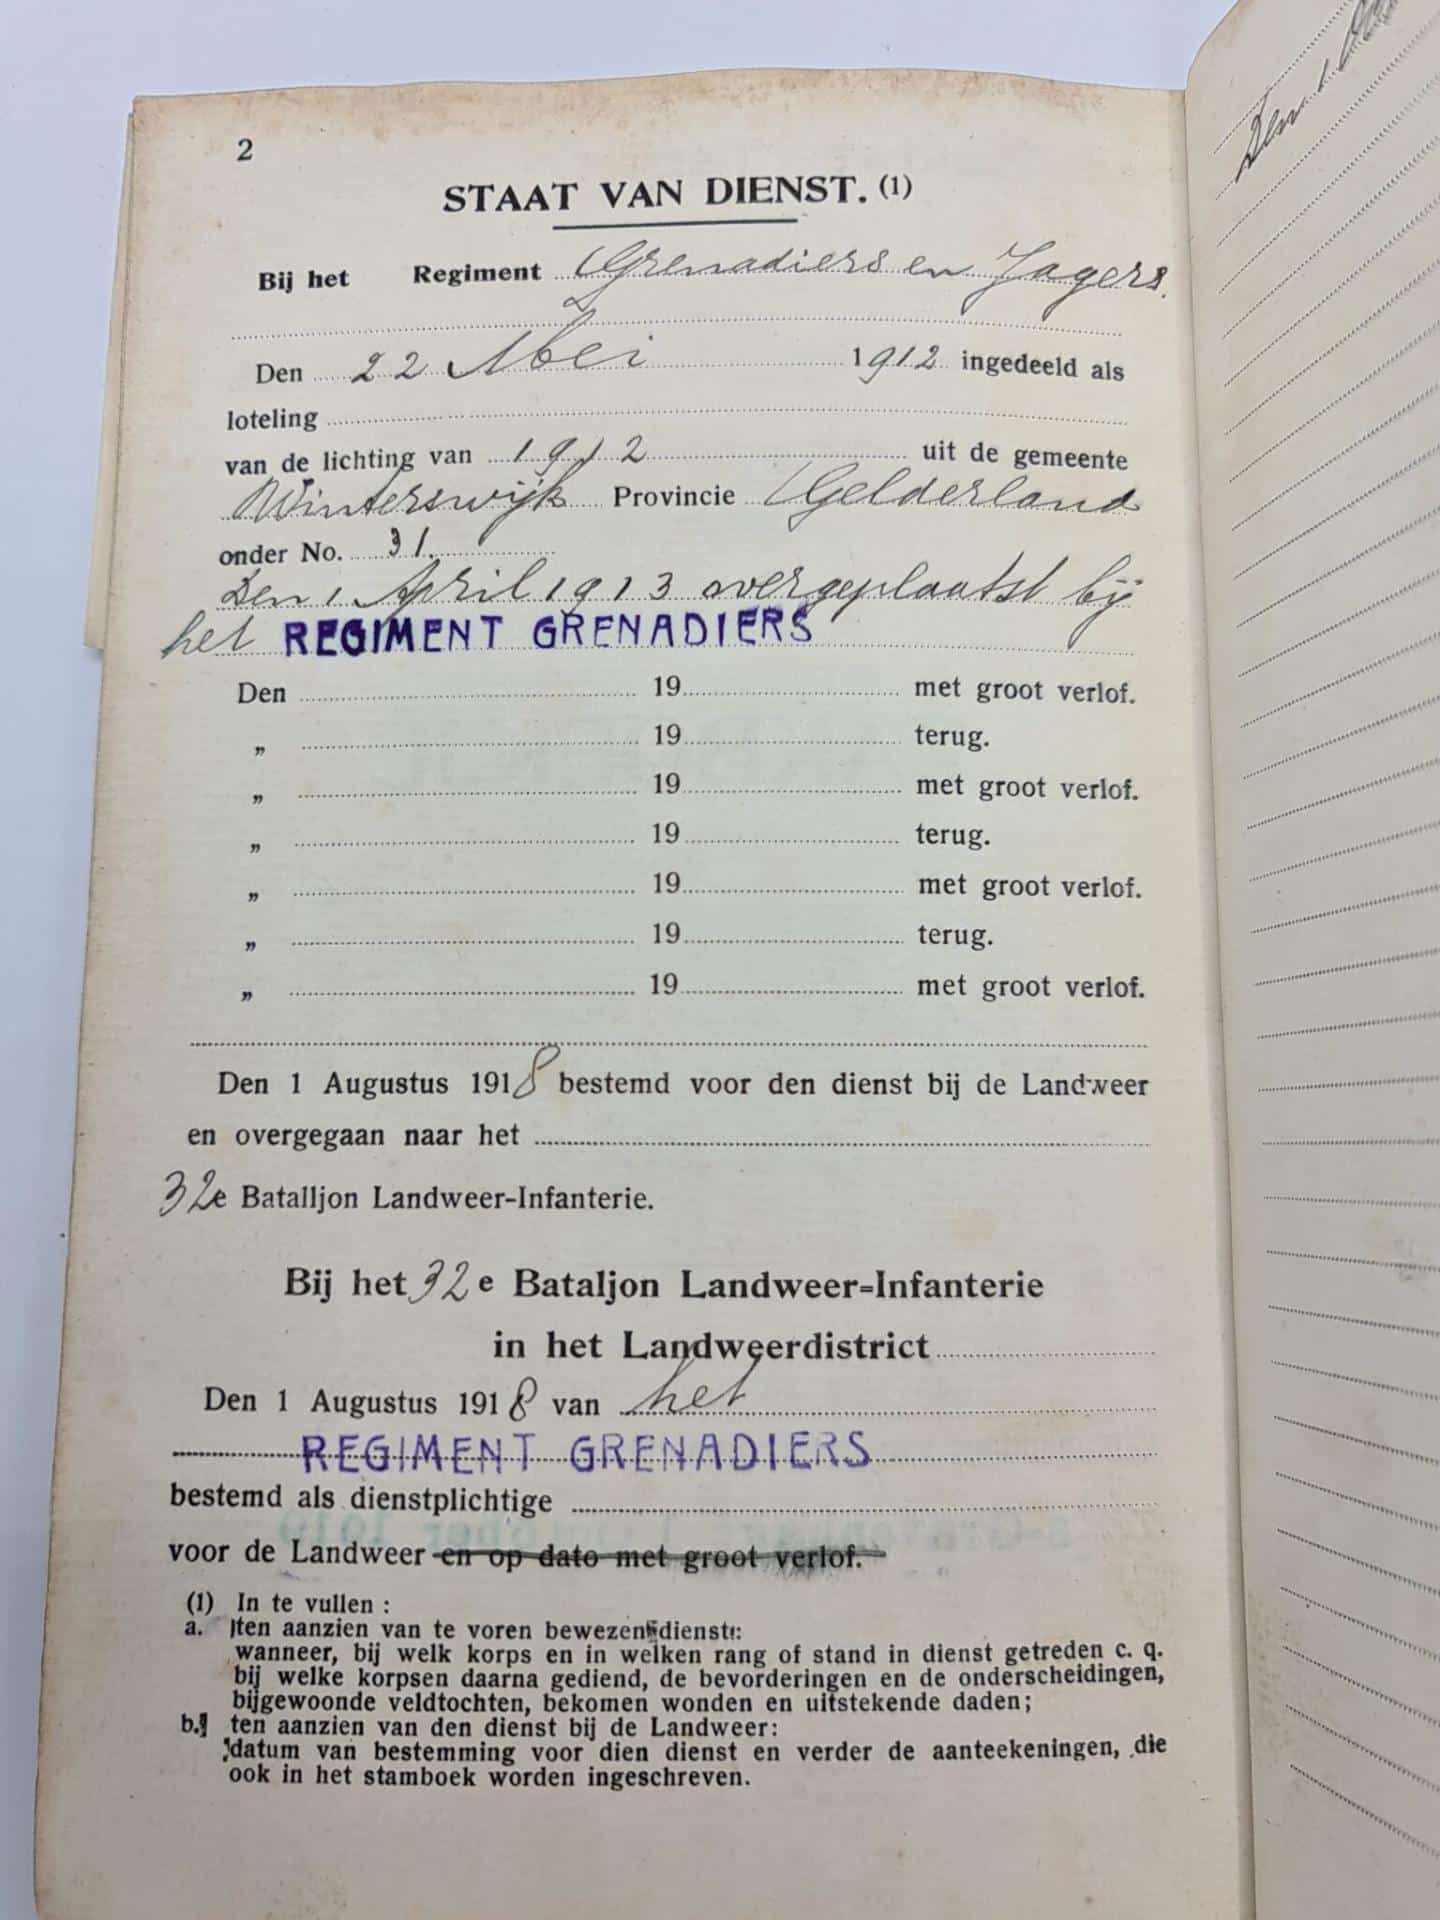 2
STAAT VAN DIENST. (1)
Bij het Regiment Grenadiers en Jagers.
Den 22 Mei 1912 ingedeeld als
loteling
van de lichting van 1912 uit de gemeente
Winterswijk Provincie Gelderland
onder No. 31.
Den 1 April 1913 overgeplaatst bij
het REGIMENT GRENADIERS
Den 19 met groot verlof.
„ 19 terug.
„ 19 met groot verlof.
„ 19 terug.
„ 19 met groot verlof.
„ 19 terug.
„ 19 met groot verlof.
Den 1 Augustus 1918 bestemd voor den dienst bij de Landweer
en overgegaan naar het
32e Batalljon Landweer-Infanterie.
Bij het 32e Bataljon Landweer-Infanterie
in het Landweerdistrict
Den 1 Augustus 1918 van het
REGIMENT GRENADIERS
bestemd als dienstplichtige
voor de Landweer en op dato met groot verlof.
(1) In te vullen :
a. ten aanzien van te voren bewezen dienst:
wanneer, bij welk korps en in welken rang of stand in dienst getreden c. q.
bij welke korpsen daarna gediend, de bevorderingen en de onderscheidingen,
bijgewoonde veldtochten, bekomen wonden en uitstekende daden;
b. ten aanzien van den dienst bij de Landweer:
datum van bestemming voor dien dienst en verder de aanteekeningen, die
ook in het stamboek worden ingeschreven.
Den 1